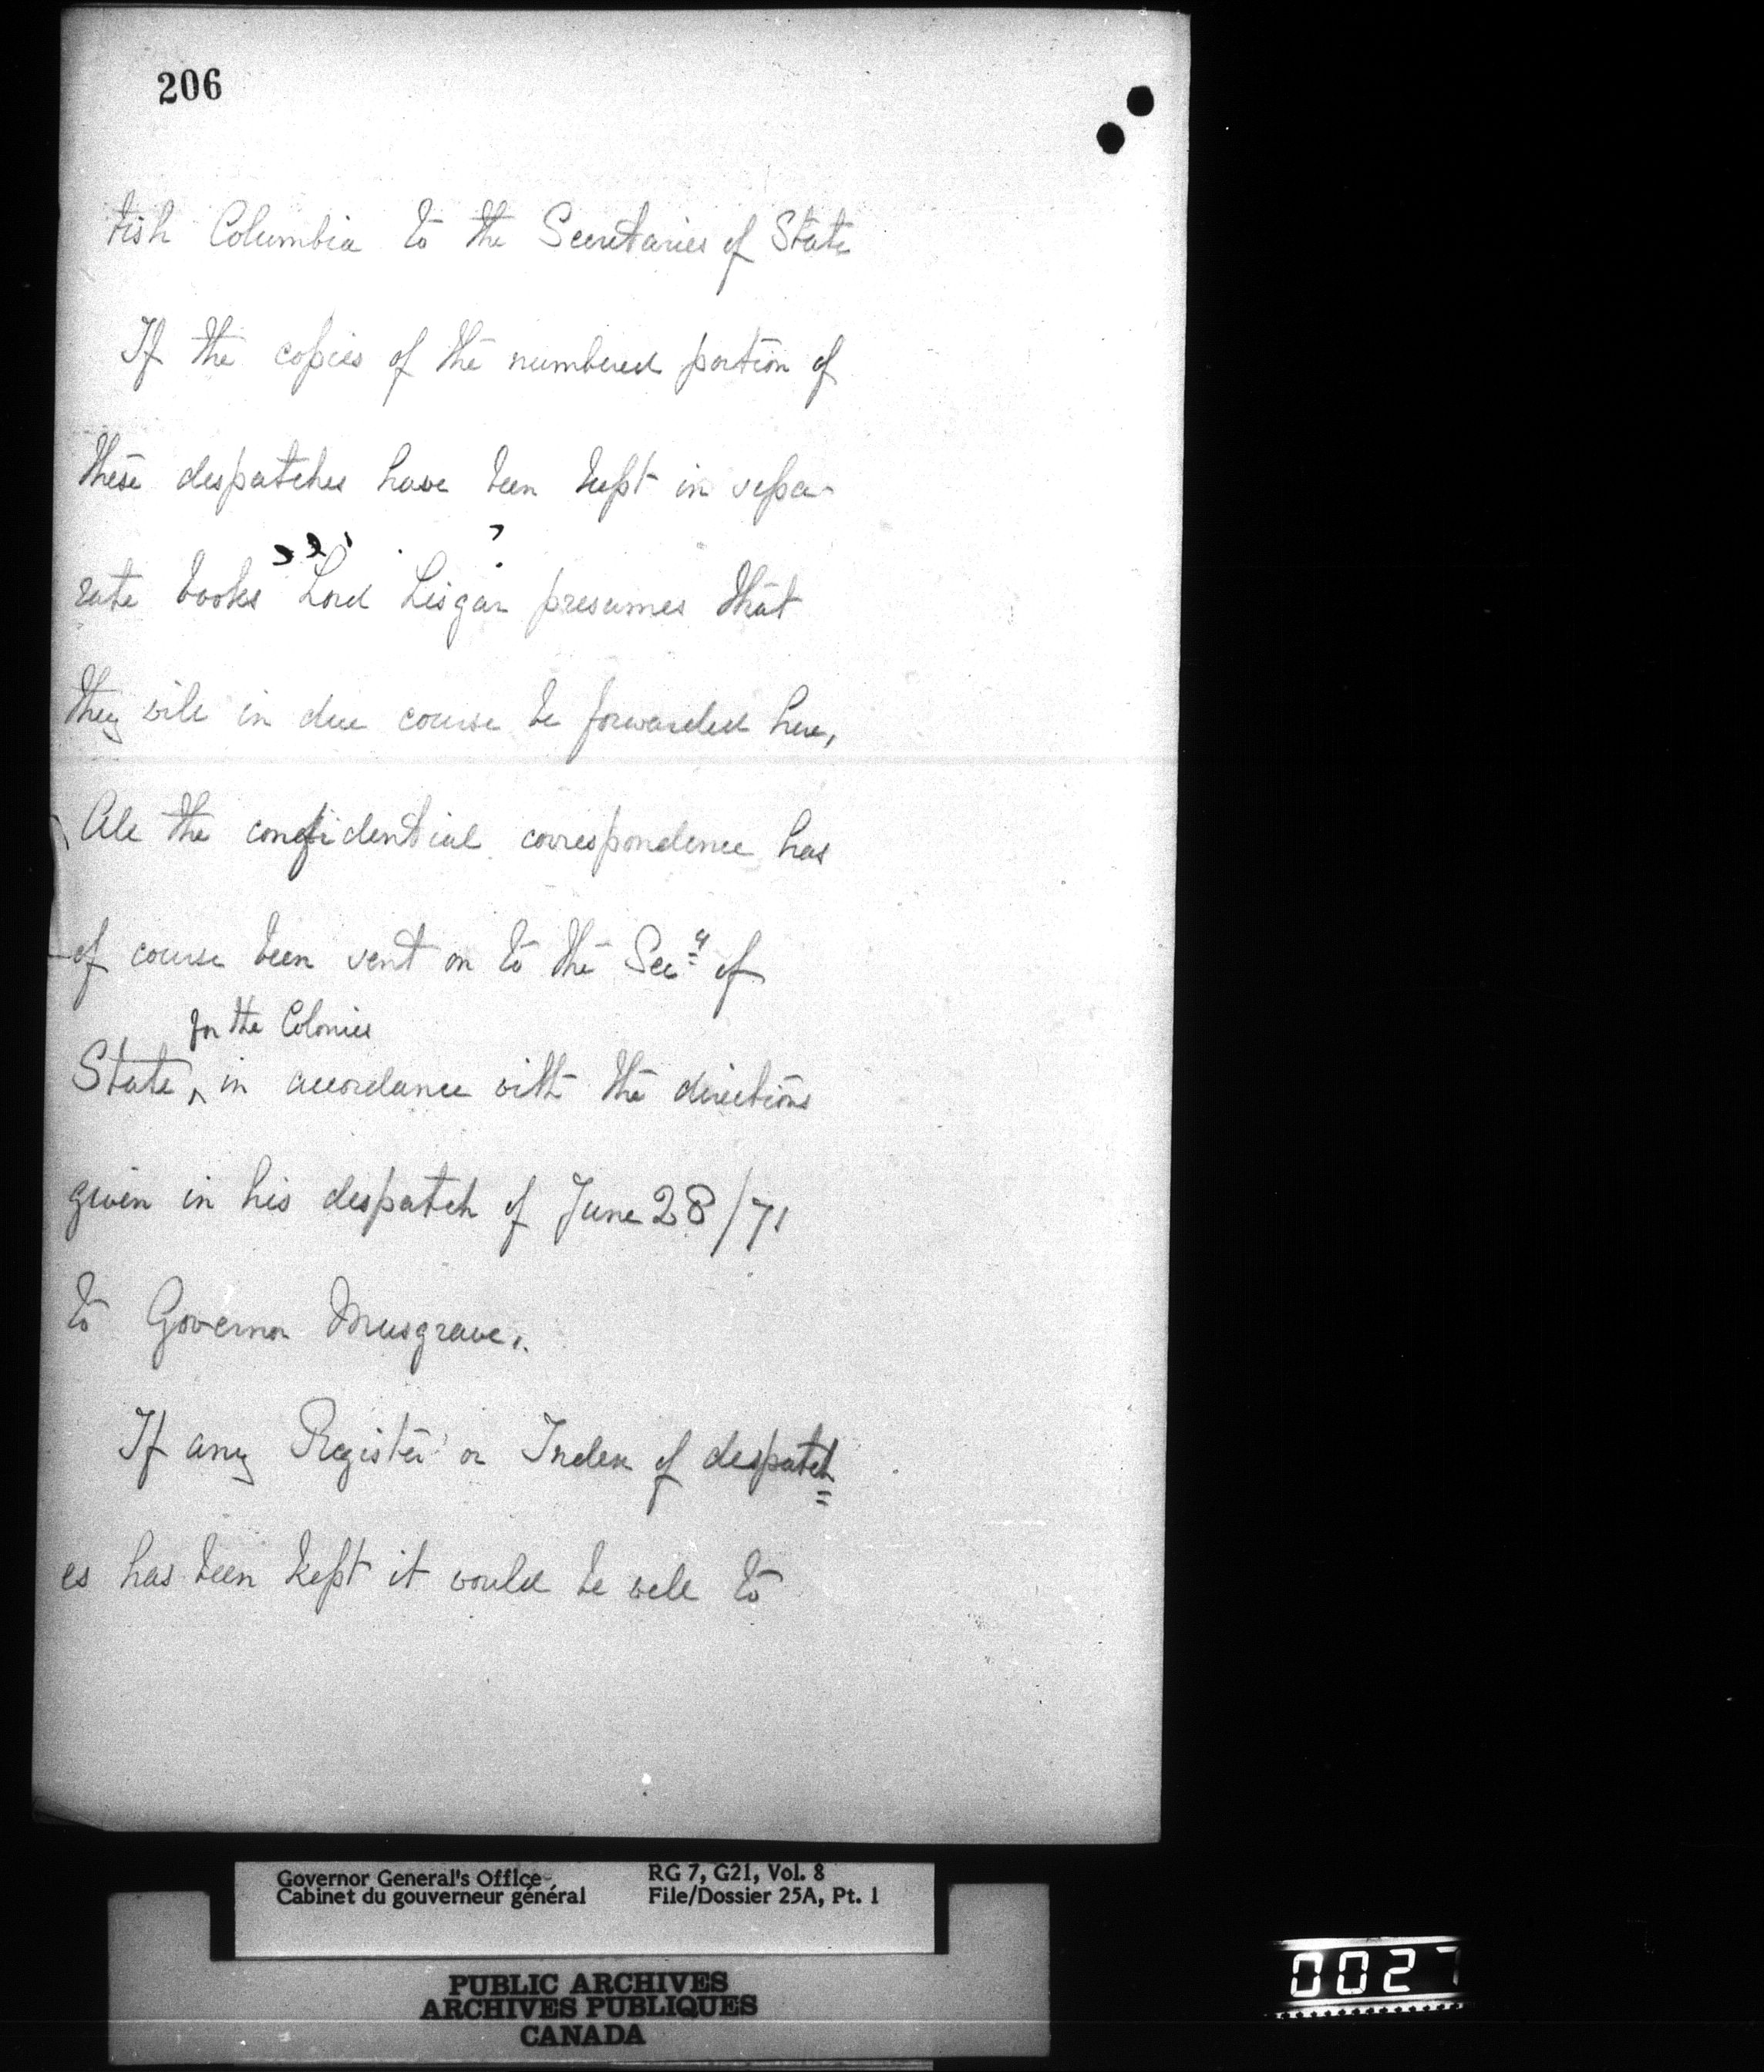 206
tish Columbia to the Secretaries of State
If the copies of the numbered portion of
these despatches have been kept in sepa-
rate books Lord Lisgar presumes that
they will in due course be forwarded here,
All the confidential correspondence has
of course been sent on to the Secy of
for the Colonies
State ^ in accordance with the directions
given in his despatch of June 28/71
to Governor Musgrave.
If any Register or Index of despatch=
es has been kept it would be well to
Governor General's Office
Cabinet du gouverneur général
RG 7, G21, Vol. 8
File/Dossier 25A, Pt. 1
PUBLIC ARCHIVES
ARCHIVES PUBLIQUES
CANADA
0027